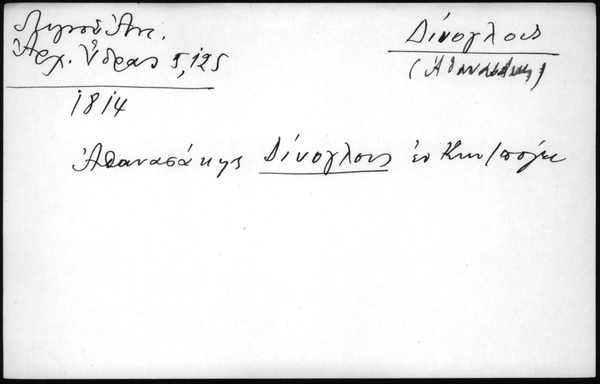 Λιγνοῦ Ἀντ.
Ἀρχ. Ὕδρας 5, 125
1814
Δίνογλους
(Ἀθανασάκης)
Ἀθανασάκης Δίνογλους ἐν Κων/πόλει